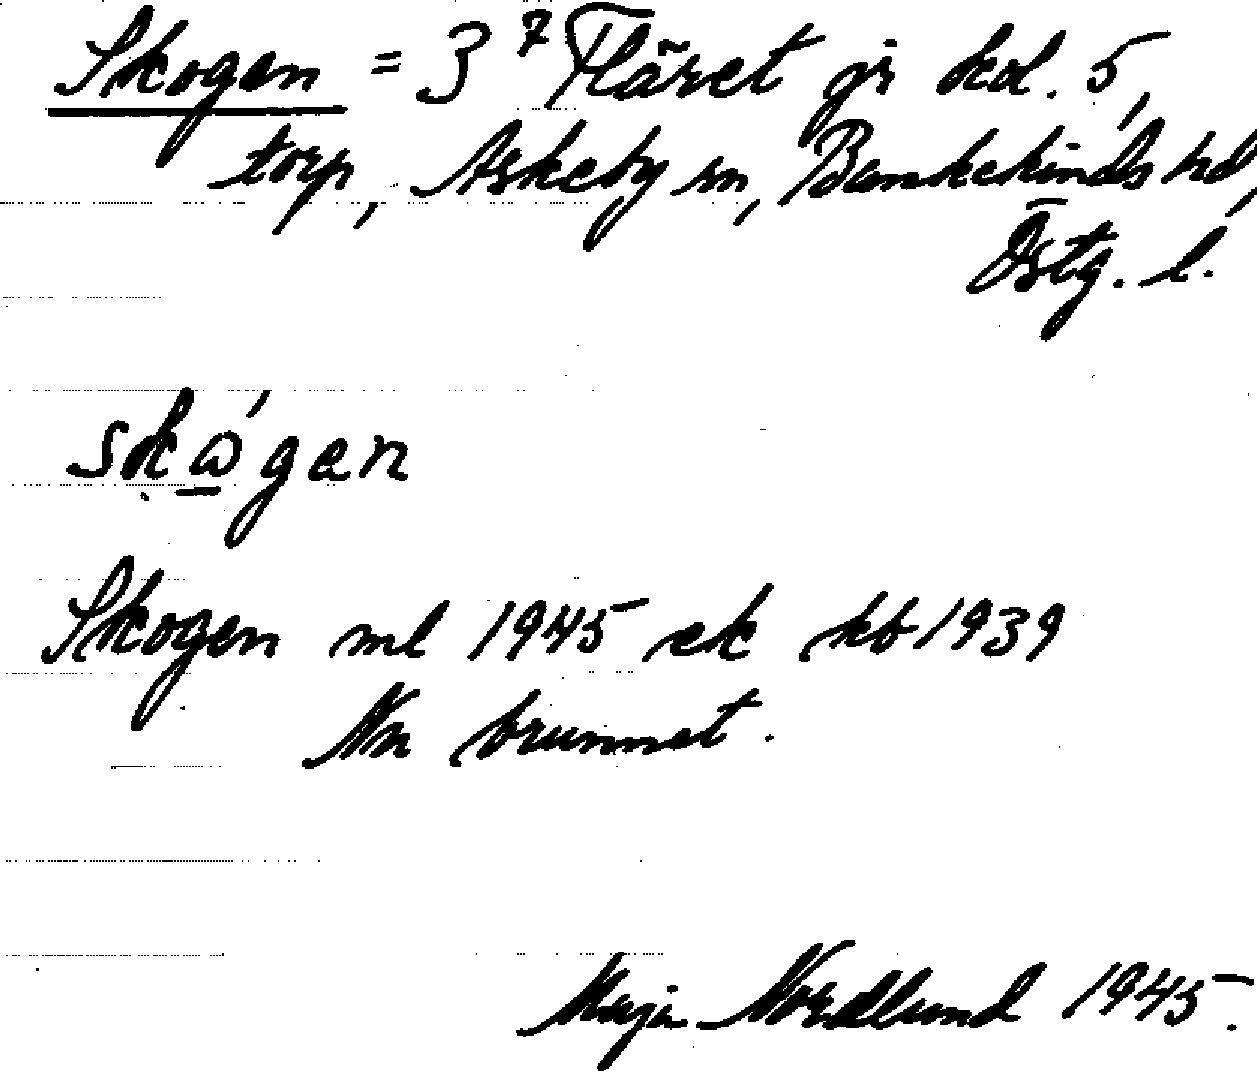 Skogen = 3⁷ Fläret gr kd. 5,
torp, Askeby sn, Bankekinds hd,
Östg. l.
skώ̲gen
Skogen ml 1945 ek kb 1939
Nn brunnet.
Maja Nordlund 1945.